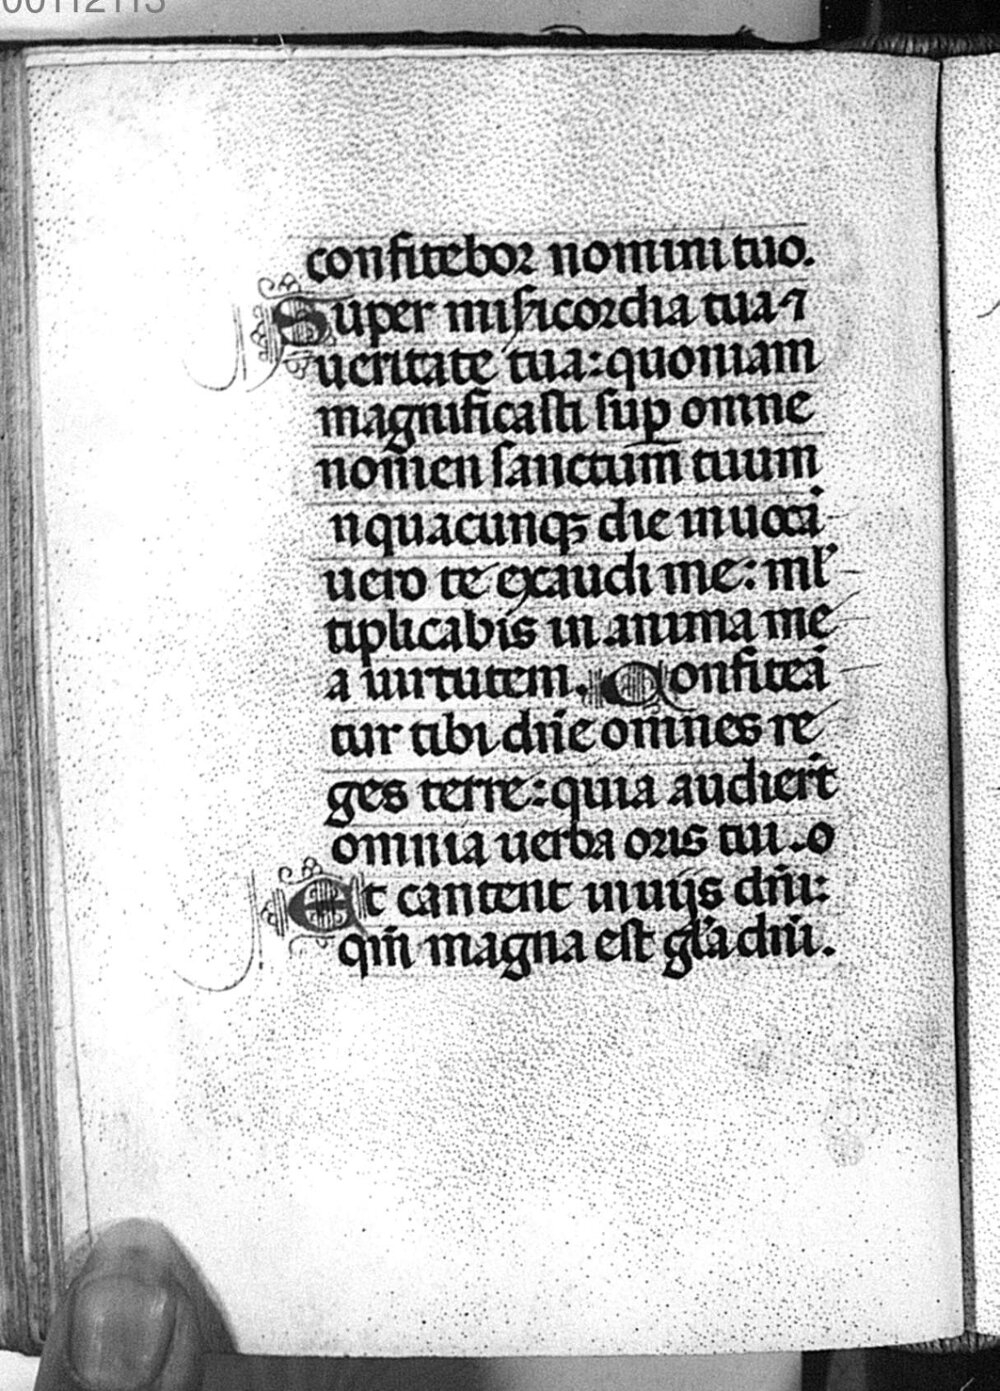 00112113
confitebor nomini tuo.
Super mis̄icordia tua ⁊
ueritate tua: quoniam
magnificasti sup̱ omne
nom̄en sanctum̄ tuum
nquacunqꝫ die inuoca
uero te exaudi me: ml̓
tiplicabis in anima me
a uirtutem. Confiteā
tur tibi dn̄e om̄nes re
ges terre: quia audiert̄
omnia uerba oris tui. o
Et cantent in uijs dn̄i:
qm̄ magna est gl̓a dn̄i.